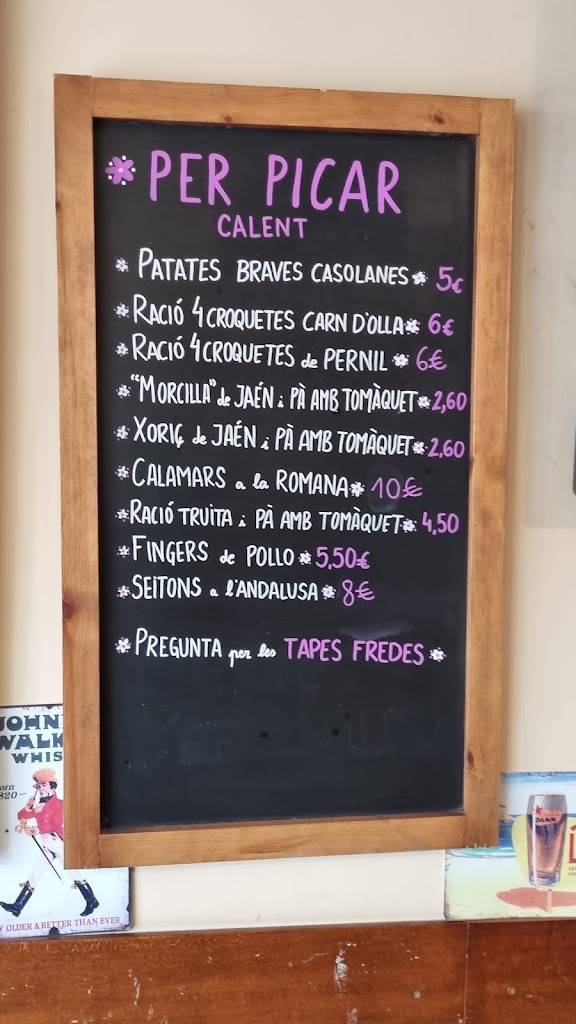 PER PICAR
CALENT
PATATES BRAVES CASOLANES 5€
RACIÓ 4 CROQUETES CARN D'OLLA 6€
RACIÓ 4 CROQUETES de PERNIL 6€
"MORCILLA" de JAÉN i PÀ AMB TOMÀQUET 2,60
XORIÇ de JAÉN i PÀ AMB TOMÀQUET 2,60
CALAMARS a la ROMANA 10€
RACIÓ TRUITA i PÀ AMB TOMÀQUET 4,50
FINGERS de POLLO 5,50€
SEITONS a l'ANDALUSA 8€
PREGUNTA per les TAPES FREDES
JOHN
WALK
WHIS
820-
OLDER & BETTER THAN EVER
DAMM